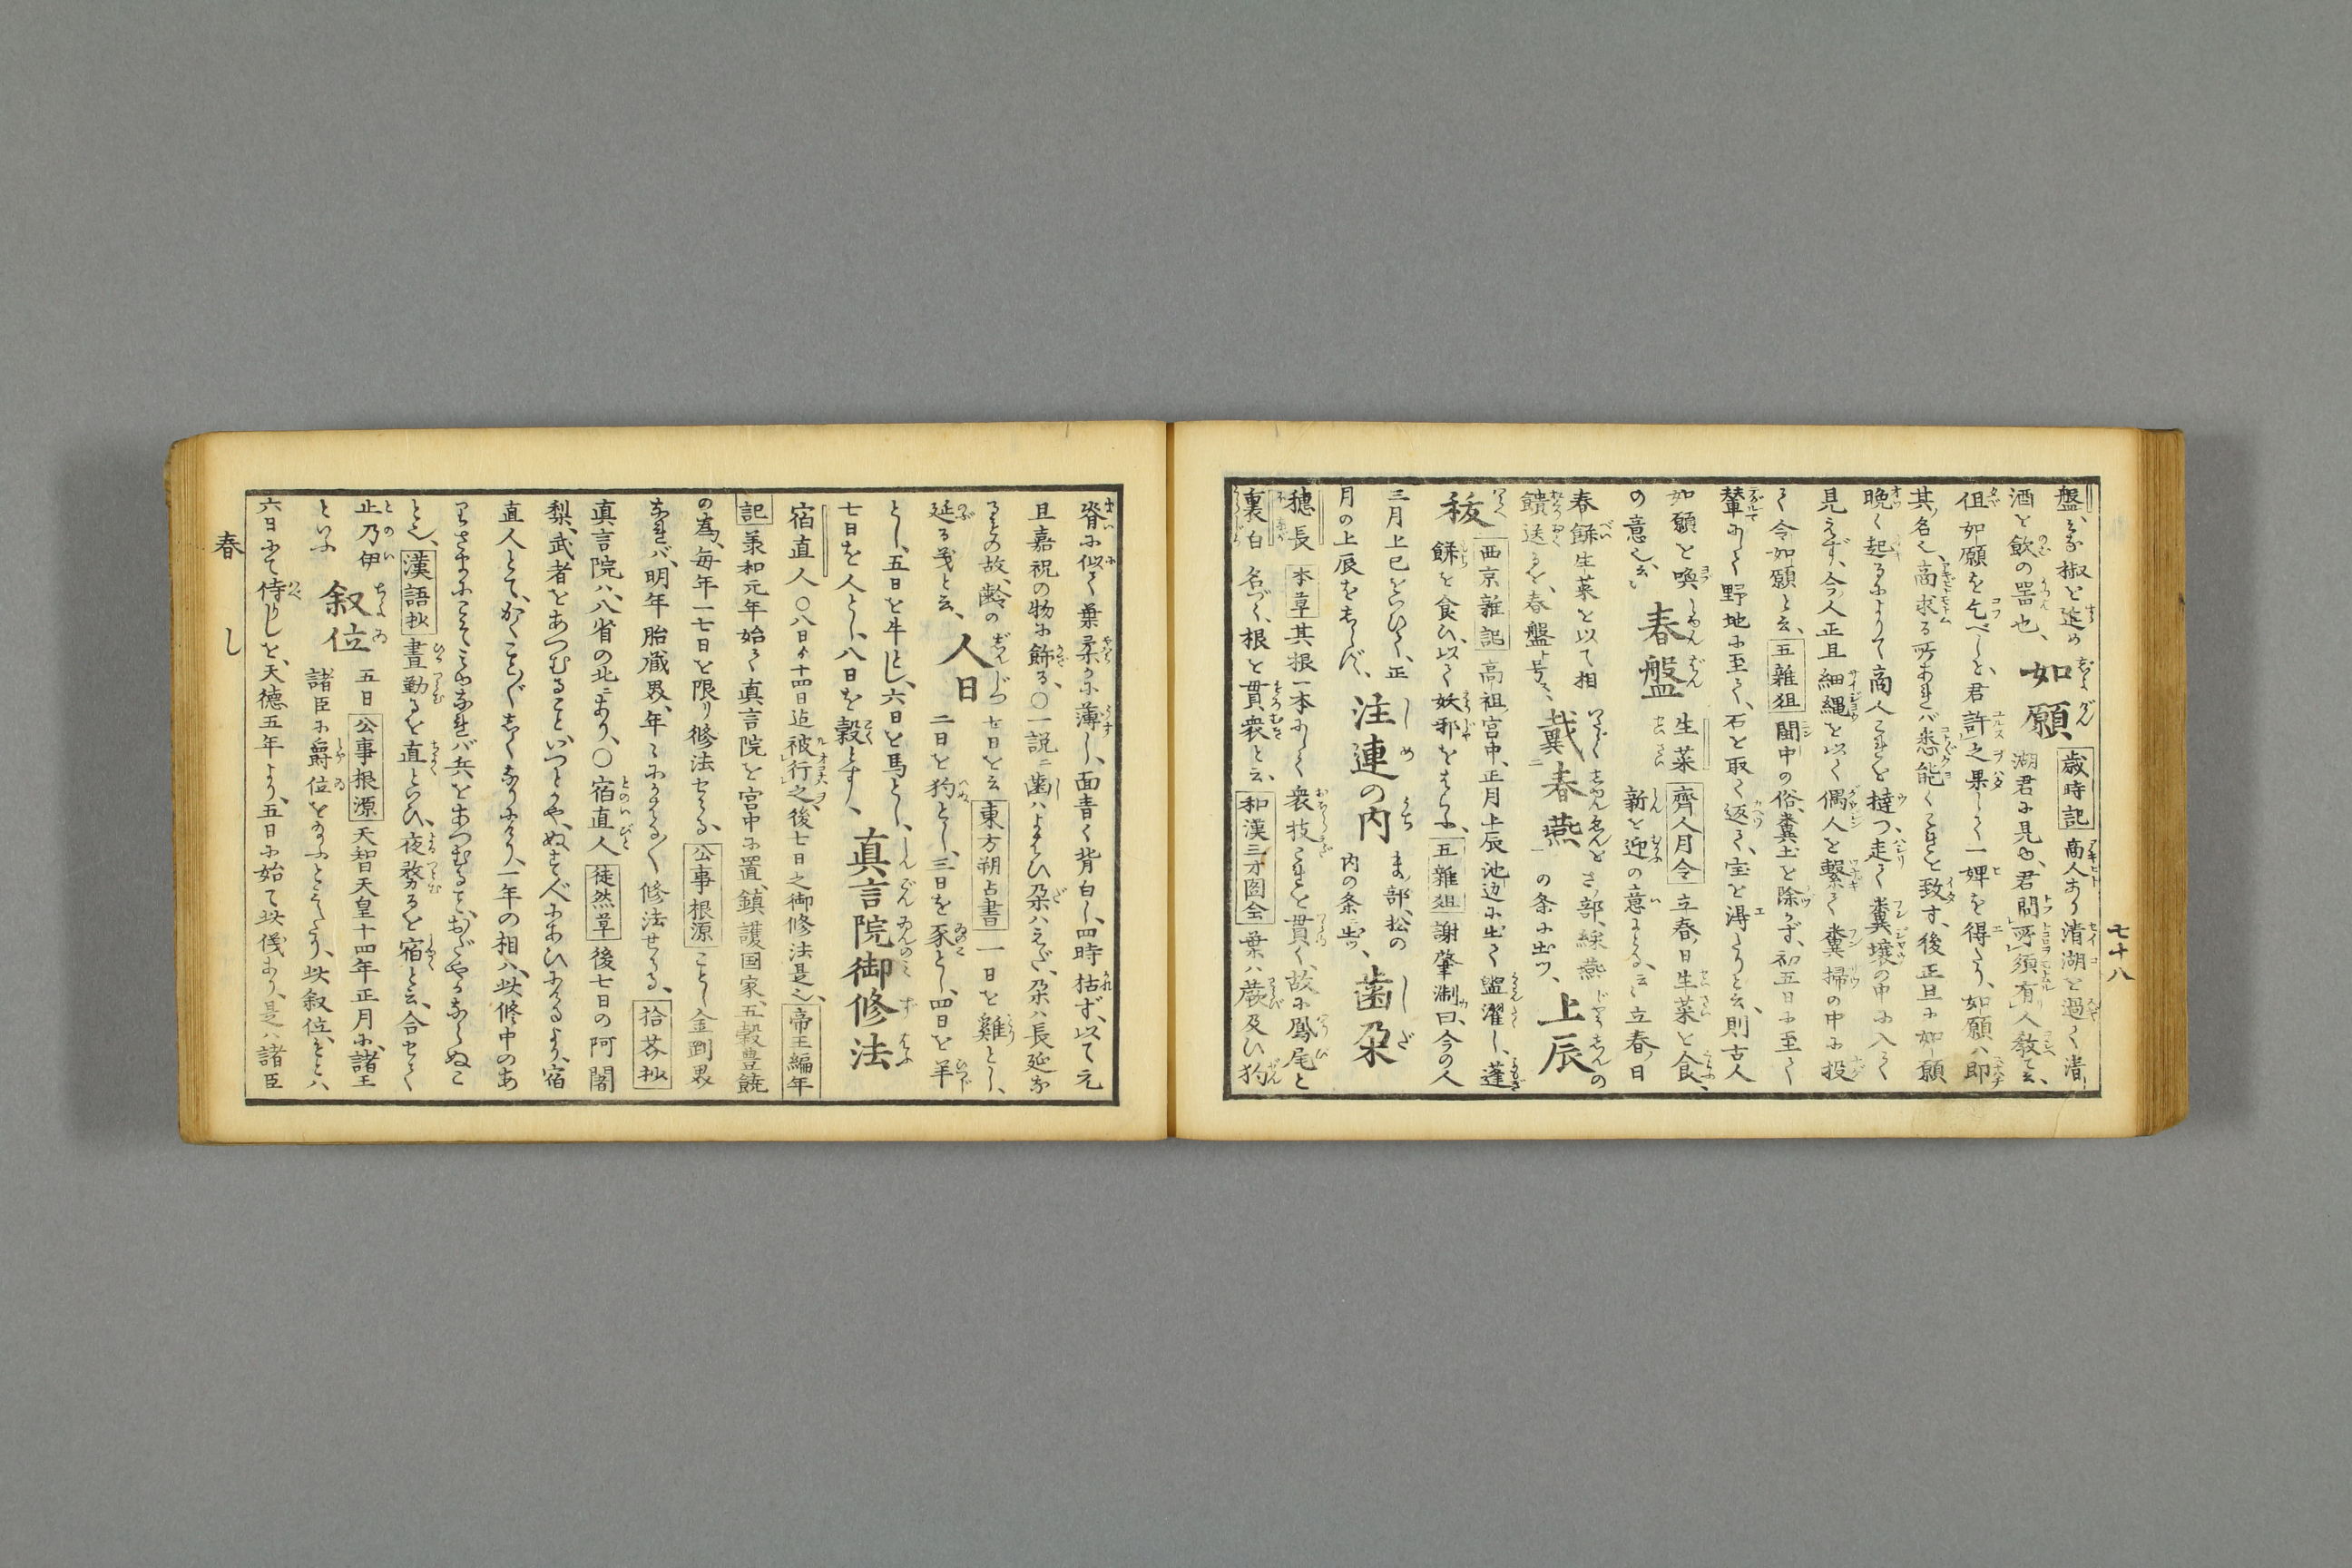 七十八
盤ハ椒を盛ル
酒を飲の噐也、如願 歳時記 商人あり清湖を過て渚
湖君に見ゆ、君問所須有人教て云、
但如願を乞べしと、君許之果して一婢を得たり、如願ハ即
其名也、商求る所あれバ悉能くこれを致す、後正旦に如願
晩く起るによりて商人これを撻つ、走て糞壤の中に入て
見えず、今人正旦細縄を以て偶人を繋て糞掃の中に投
て令如願と云、五雜狙 閩中の俗、糞土を除かず、初五日に至て
輦にして野地に至て、石を取て返て、宝を得たりと云、則古人
如願と喚
の意也、云云 春盤 生菜 齊人月令 立春日生菜を食
新を迎の意にとる、云云 立春日
春餅生菜を以て相
饋送るを、春盤と号く、戴春燕 部、綵燕
の条に出ヅ、上辰
祓 西京雜記 高祖宮中、正月上辰池辺に出て盥濯し、蓬
餅を食ひ、以て妖邪を 五雜俎 謝肇淛曰、今の人
三月上巳を 正
月の上辰を 注連の内 ま部、松の
内の条ニ出ヅ、歯朶
穂長 本草 其根一本にして衆枝これを貫く、故に鳳尾と
裏白 名づく、根を貫衆と云、和漢三才圖会 葉ハ蕨及ひ狗
脊に似て葉柔かに薄し、面青く背白し、四時枯ず、以て元
旦嘉祝の物に飾る、○一説ニ歯ハよはひ朶ハえだ、朶ハ長延
るもの故、齢の
延る義と云、人日 七日を云 東方朔占書 一日を雞とし、
二日を狗とし、三日を豕とし、四日を羊
とし、五日を牛とし、六日を馬とし、
七日を人とし、八日を穀とす、真言院御修法
宿直人 ○八日より十四日迄被行之、後七日之御修法是也、帝王編年
記 兼和元年始て真言院を宮中に置、鎮護国家、五穀豊饒
の為、毎年一七日を限り修法せらる、公事根源 ことし金剛界
なれバ、明年胎蔵界、年々にかはる〴〵修法せらる、拾芥抄
真言院ハ、八省の北ニあり、○宿直人 徒然草 後七日の阿闍
梨、武者をあつむること、いつとかや、ぬす人にあひにけるより、宿
直人とて、かくこと〴〵しくなりにけり、一年の相ハ、此修中のあ
りさまにこそ見ゆなれバ、兵をあつむること、おだやかならぬこ
と也、漢語抄 晝勤るを直といひ、夜務るを宿と云、合せて
止乃伊
といふ 叙位 五日 公事根源 天智天皇十四年正月に、諸王
諸臣に爵位を給ふとみえたり、此叙位ごとハ
六日にて侍べりしを、天徳五年より、五日に始て此儀あり、是ハ諸臣
春 し